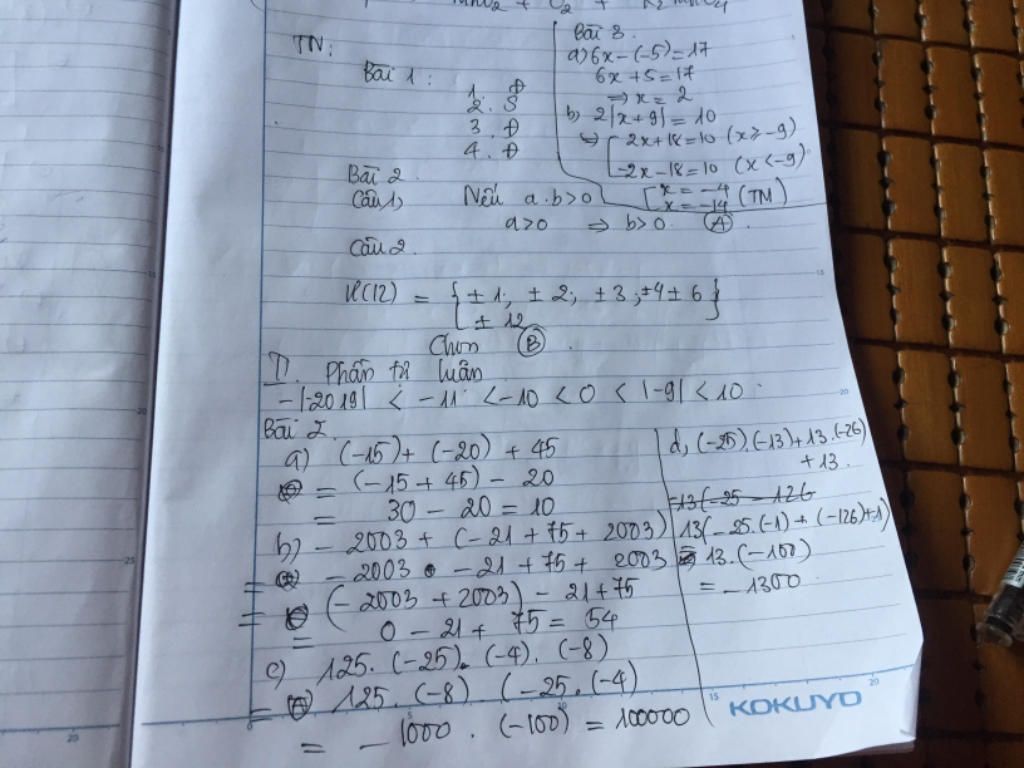 MnO2 + O2 + K2MnO4
TN:
Bài 1:
1. Đ
2. S
3. Đ
4. Đ
Bài 2.
Câu 1) Nếu a.b>0
a>0 ⇒ b>0. (A).
Câu 2.
Ư(12) = {±1; ±2; ±3; ±4 ±6
±12}
Chọn (B).
Bài 3.
a) 6x-(-5)=17
6x+5=17
⇒ x = 2
b) 2|x+9| = 10
⇒ [2x+18=10 (x≥-9)
-2x-18=10 (x<-9)
[x = -4
x = -14 (TM)
II. Phần tự luận
-|-2019| < -11 < -10 < 0 < |-9| < 10.
Bài 2.
a) (-15)+(-20)+45
= (-15+45) - 20
= 30 - 20 = 10
b) - 2003 + (-21+75+2003)
= -2003 - 21 + 75 + 2003
= (-2003+2003) - 21+75
= 0 - 21 + 75 = 54
c) 125.(-25).(-4).(-8)
= 125.(-8) (-25.(-4)
= -1000 . (-100) = 100000
d, (-25).(-13)+13.(-26)
+13.
=13(-25-126
13(-25.(-1)+(-126)+1)
= 13.(-100)
= -1300
KOKUYO